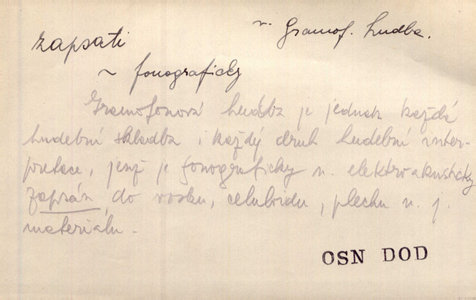 zapsati
v. Gramof. hudba.
~ fonograficky
Gramofonová hudba je jednak každá
hudební skladba i každý druh hudební inter-
pretace, jenž je fonograficky n. elektroakusticky
zapsán do vosku, celuloidu, plechu n. j.
materiálu.
OSN DOD